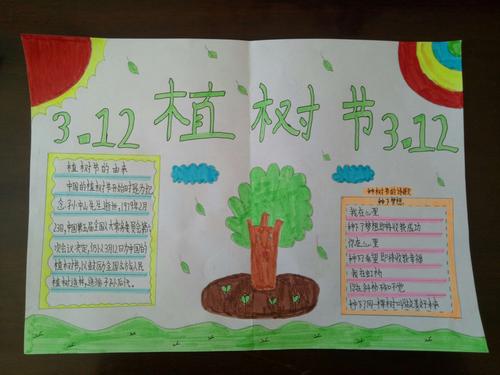 3.12 植树节 3.12
植树节的由来
中国的植树节开始时是为纪
念孙中山先生逝世,1979年2月
23日,中国第五届全国人大常务委员会第六
次会议决定,仍以3月12日为中国的
植树节,以鼓励全国各族人民
植树造林,造福子孙后代。
种树节的诗歌
种下梦想
我在心里
种下梦想即将收获成功
你在心里
种下希望即将收获幸福
我在虹桥
你在斜桥